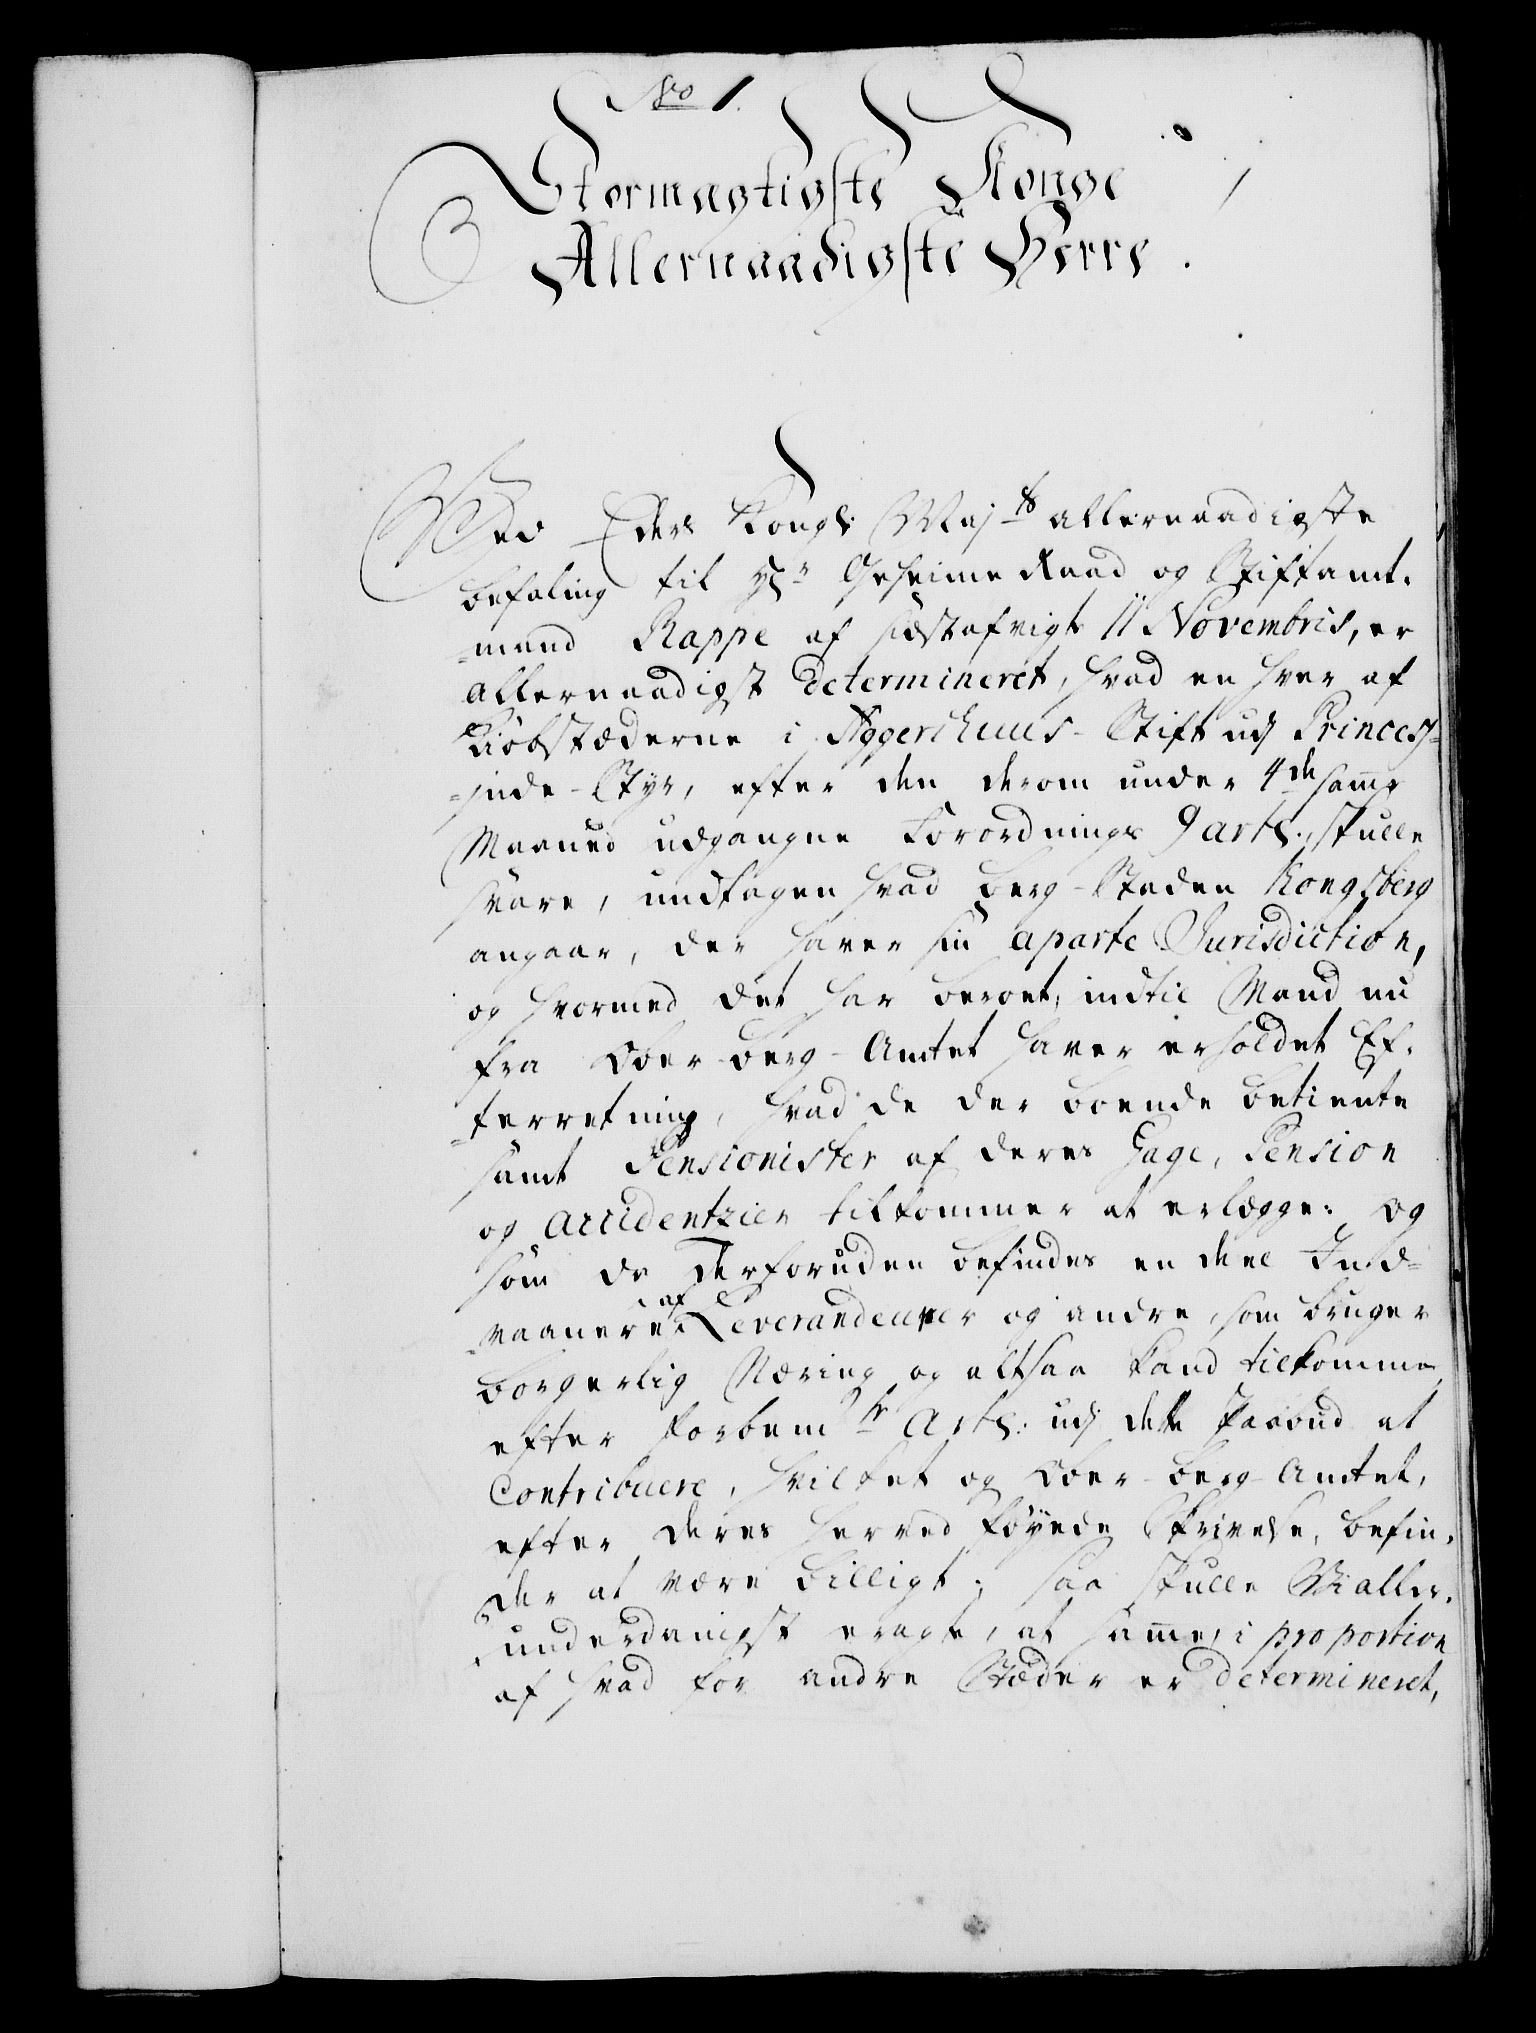 No 1.
Stormægtigste Konge
Allernaadigste Herre.
Ved Eders Kongl: Maj:ts allernaadigste
befaling til Hr Geheime Raad og Stiftamt-
=mand Rappe af sidstafvigte 11 Novembris, er
allernaadigst determineret, hvad en hver af
Kiøbstæderne i Aggershuus-Stift udj Princes-
=sinde-Styr, efter den derom under 4de samme
Maaned udgangne Forordnings 9 artl:, skulle
svare, undtagen hvad Berg-Staden Kongsberg
angaar, der haver sin aparte Jurisdiction,
og hvormed det har beroet, indtil Mand nu
fra Ober-Berg-Amtet haver erholdet Ef-
=terretning, hvad de der boende betiente
samt Pensionister af deres Gage, Pension
og Accidentzier tilkommer at erlægge: og
som der derforuden befindes en deel Ind-
=vaanere af Leverandeurer og andre, som bruger
borgerlig Næring og altsaa kand tilkomme
efter forbemte Artl: udj dette Paabud at
Contribuere, hvilket og Ober-Berg-Amtet,
efter deres herved føyede Skrivelse, befin-
der at være billigt; saa skulle Vi aller-
underdanigst eragte, at samme, i proportion
af hvad for andre Stæder er determineret,